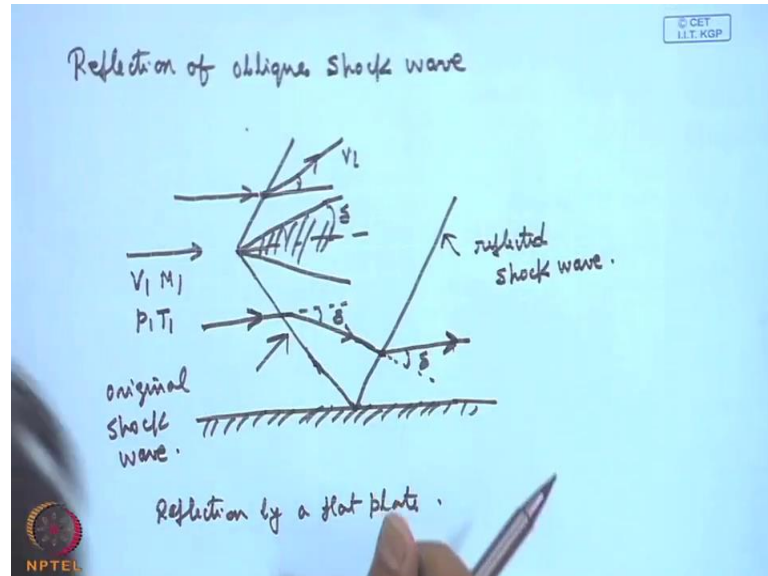 © CET
I.I.T. KGP
Reflection of oblique shock wave
V2
δ
V1 M1
P1 T1
reflected
shock wave.
δ
δ
original
shock
wave.
Reflection by a flat plate.
NPTEL